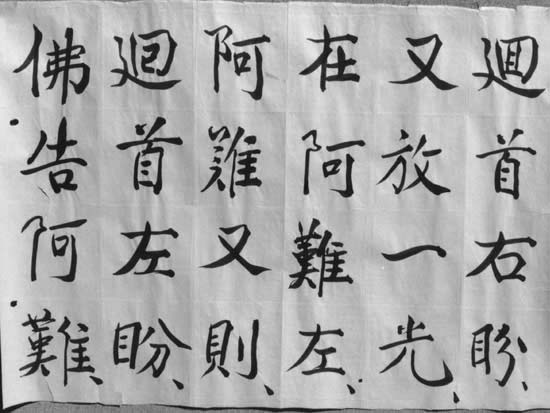 迴首右盼、
又放一光、
在阿難左、
阿難又則、
迴首左盼、
佛告阿難、